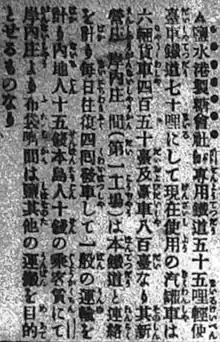 ▲鹽水港製糖會社の専用鐵道五十五哩輕便
臺車鐵道七十哩にして現在使用の汽罐車は
六輛貨車四百五十臺及臺車八百臺なり其新
營庄、岸內庄間(第一工場)は本鐵道と連絡
を計り毎日往復四囘發車して一般の運輸を
計り內地人十五錢本島人十錢の乘客賃にて
岸內庄より布袋嘴間は鹽其他の運搬を目的
とせるものなり